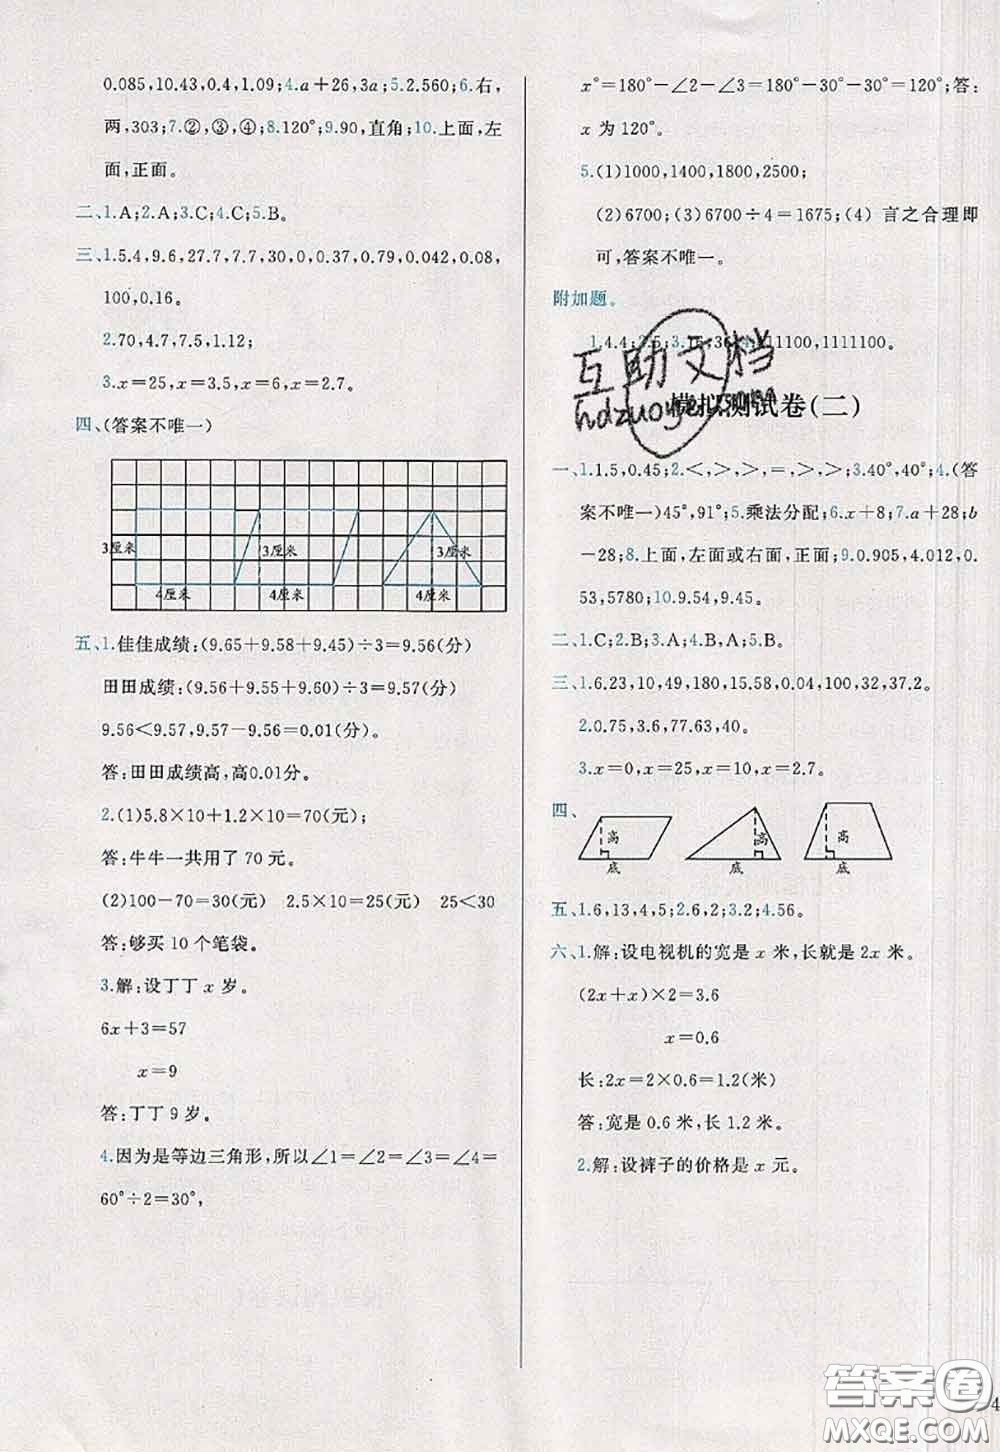 0.085,10.43,0.4,1.09;4.a+26,3a;5.2.560;6.右,
两,303;7.②,③,④;8.120°;9.90,直角;10.上面,左
面,正面。
二、1.A;2.A;3.C;4.C;5.B。
三、1.5.4,9.6,27.7,7.7,30,0,0.37,0.79,0.042,0.08,
100,0.16。
2.70,4.7,7.5,1.12;
3.x=25,x=3.5,x=6,x=2.7。
四、(答案不唯一)
3厘米
3厘米
3厘米
4厘米
4厘米
五、1.佳佳成绩:(9.65+9.58+9.45)÷3=9.56(分)
田田成绩:(9.56+9.55+9.60)÷3=9.57(分)
9.56<9.57,9.57-9.56=0.01(分)。
答:田田成绩高,高0.01分。
2.(1)5.8×10+1.2×10=70(元);
答:牛牛一共用了 70 元。
(2)100-70=30(元) 2.5×10=25(元) 25<30
答:够买 10 个笔袋。
3.解:设丁丁 x 岁。
6x+3=57
x=9
答:丁丁 9 岁。
4.因为是等边三角形,所以∠1=∠2=∠3=∠4=
60°÷2=30°,
x°=180°-∠2-∠3=180°-30°-30°=120°;答:
x 为 120°。
5.(1)1000,1400,1800,2500;
(2)6700;(3)6700÷4=1675;(4) 言之合理即
可,答案不唯一。
附加题。
1.4.4;2.5;3.15,36;4.111100,1111100。
互助文档
hdzuoye
模拟测试卷(二)
一、1.1.5,0.45;2.<,>,>,=,>,>;3.40°,40°;4.(答
案不唯一)45°,91°;5.乘法分配;6.x+8;7.a+28;b
-28;8.上面,左面或右面,正面;9.0.905,4.012,0.
53,5780;10.9.54,9.45。
二、1.C;2.B;3.A;4.B,A;5.B。
三、1.6.23,10,49,180,15.58,0.04,100,32,37.2。
2.0.75,3.6,77.63,40。
3.x=0,x=25,x=10,x=2.7。
四、
高
底
高
底
高
底
五、1.6,13,4,5;2.6,2;3.2;4.56。
六、1.解:设电视机的宽是 x 米,长就是 2x 米。
(2x+x)×2=3.6
x=0.6
长:2x=2×0.6=1.2(米)
答:宽是 0.6 米,长 1.2 米。
2.解:设裤子的价格是 x 元。
答案圈
MXQE.COM
4